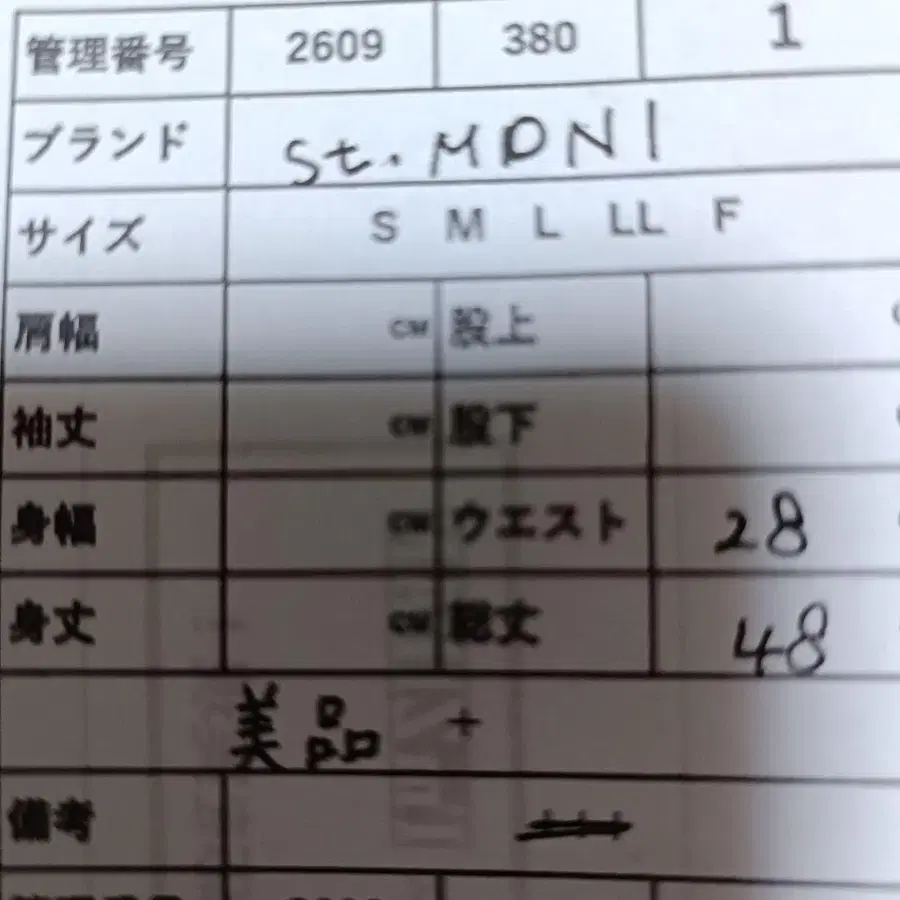 管理番号 2609 380 1
ブランド St.MONI
サイズ S M L LL F
肩幅 CM 股上
袖丈 CM 股下
身幅 CM ウエスト 28
身丈 CM 総丈 48
美品 +
備考
管理番号 2609